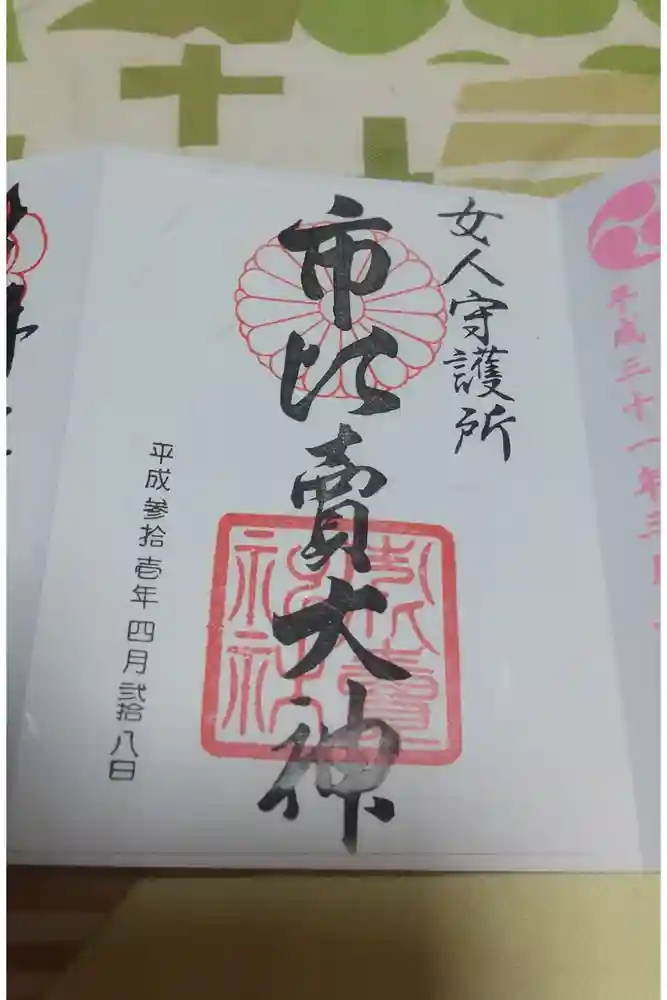 平成三十一年三月
女人守護所
市比賣大神
平成参拾壱年四月弐拾八日